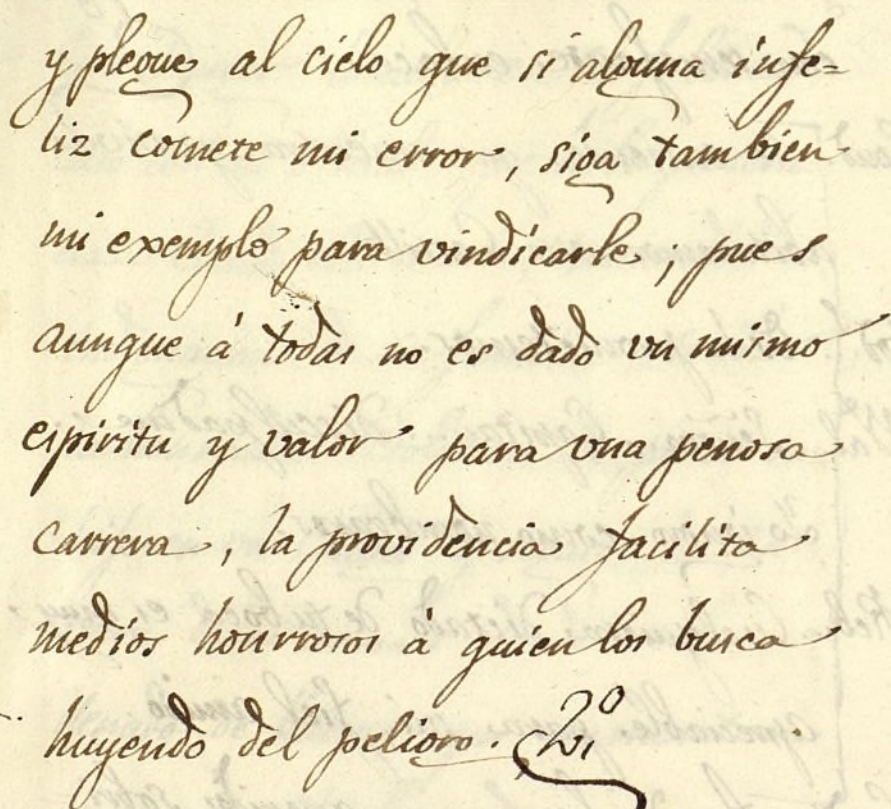 y plegue al cielo que si alguna infe=
liz comete mi error, siga tambien
mi exemplo para vindicarle; pues
aunque à todas no es dado vn mismo
espiritu y valor para vna penosa
carrera, la providencia facilita
medios honrrosos à quien los busca
huyendo del peligro.